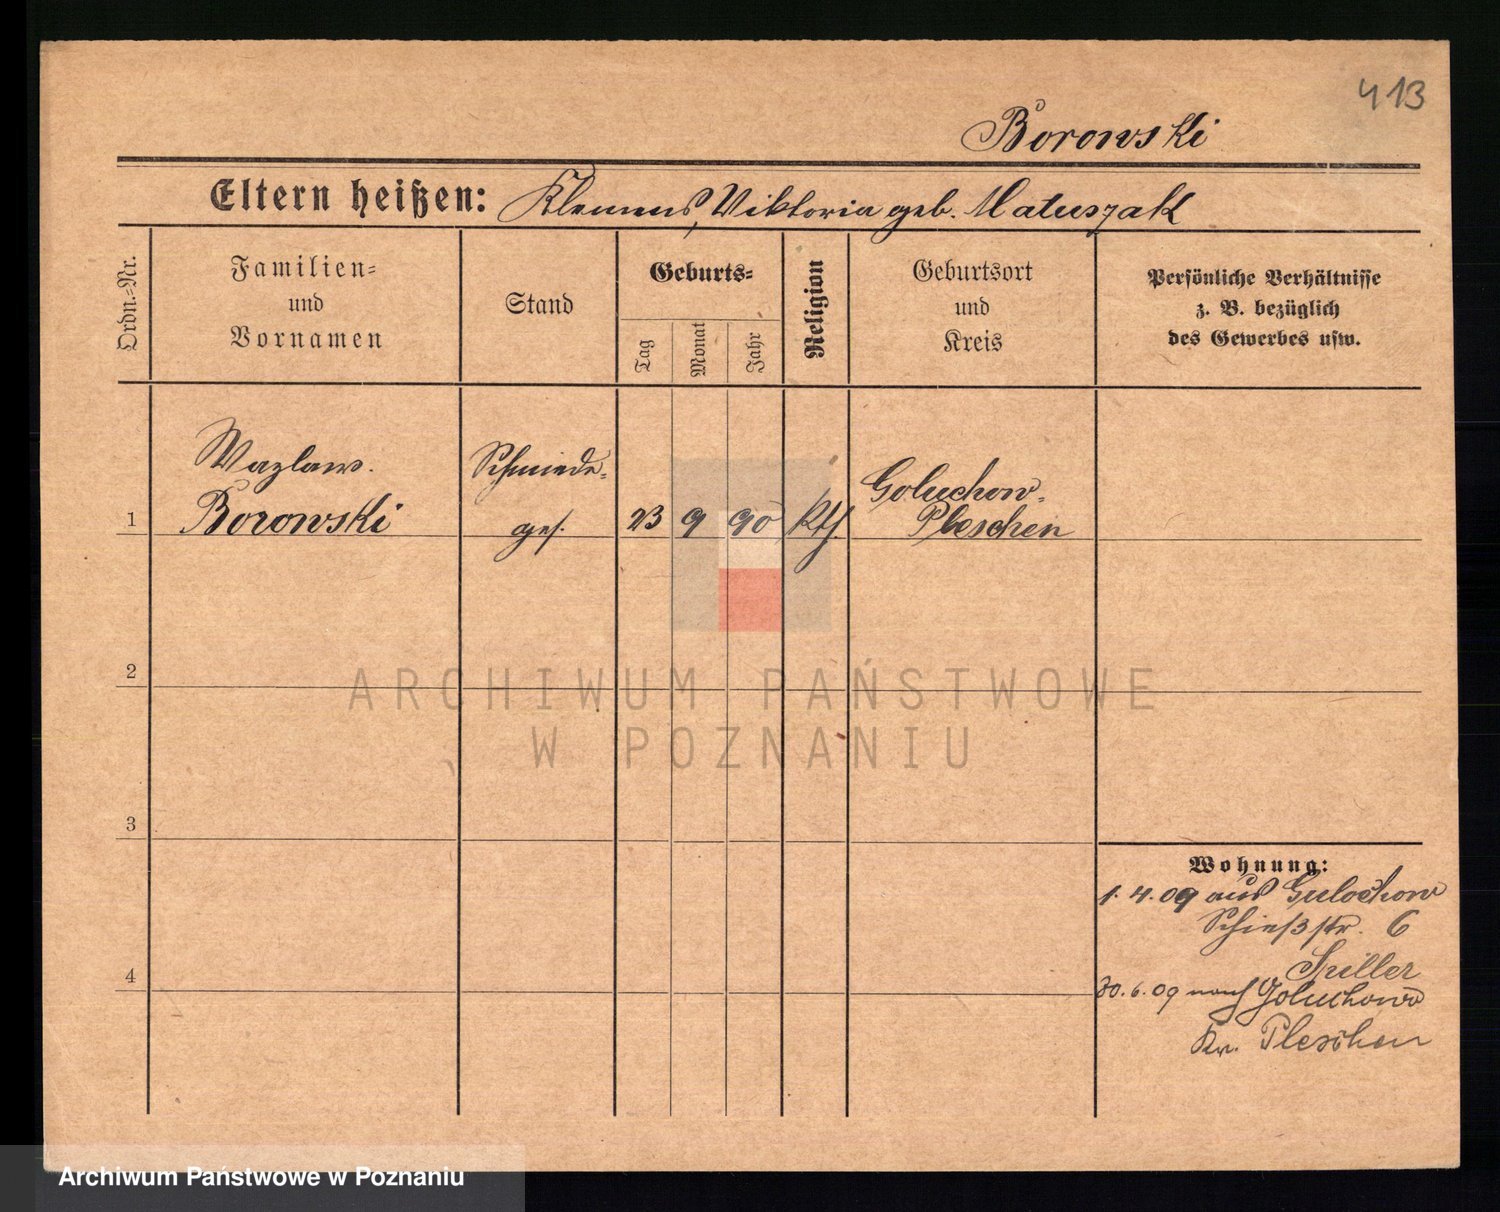 413
Borowski
Eltern heißen: Klemens, Viktoria geb. Matuszak
Ordn.-Nr.
Familien-
und
Vornamen
Stand
Geburts-
Tag
Monat
Jahr
Religion
Geburtsort
und
Kreis
Persönliche Verhältnisse
z. B. bezüglich
des Gewerbes usw.
1
Wazlaw.
Borowski
Schmiede-
ges.
23
9
90
Kth.
Goluchow.
Pleschen
2
ARCHIWUM PAŃSTWOWE
W POZNANIU
3
Wohnung:
1.4.09 aus Gulochow
Schießstr. 6
Spiller
4
30.6.09 nach Goluchowo
Kr. Pleschen
Archiwum Państwowe w Poznaniu